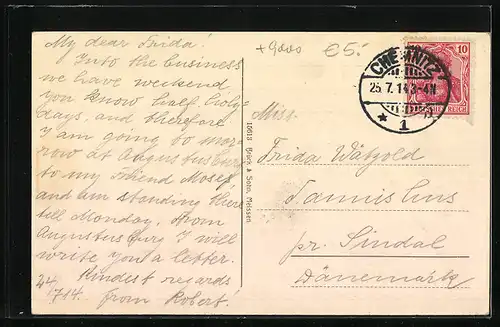 My dear Frida!
Into the business
we have weekend,
you know half holy-
days, and therefore
I am going to mor-
row at Augustusburg
to my friend Moses,
and am standing there
till Monday. From
Augustusburg I will
write you a letter.
24. Kindest regards
7.14. from Robert!
+9000
€5.-
CHEMNITZ
25.7.14.3-4N
* 1
10
Miss.
Frida Wätzold
Tannishus
pr. Sindal
Dänemark
10613 Brück & Sohn, Meissen